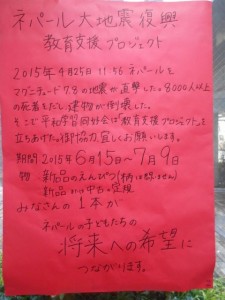 ネパール大地震復興
教育支援プロジェクト
2015年4月25日 11:56 ネパールを
マグニチュード7.8の地震が直撃した。8000人以上
の死者をだし、建物が倒壊した。
そこで平和学習同好会は「教育支援プロジェクト」を
立ちあげた。御協力、宜しくお願いします。
期間 2015年6月15日〜7月9日
物 新品のえんぴつ(柄は問いません)
新品か中古の定規
みなさんの1本が
ネパールの子どもたちの
将来への希望に
つながります。